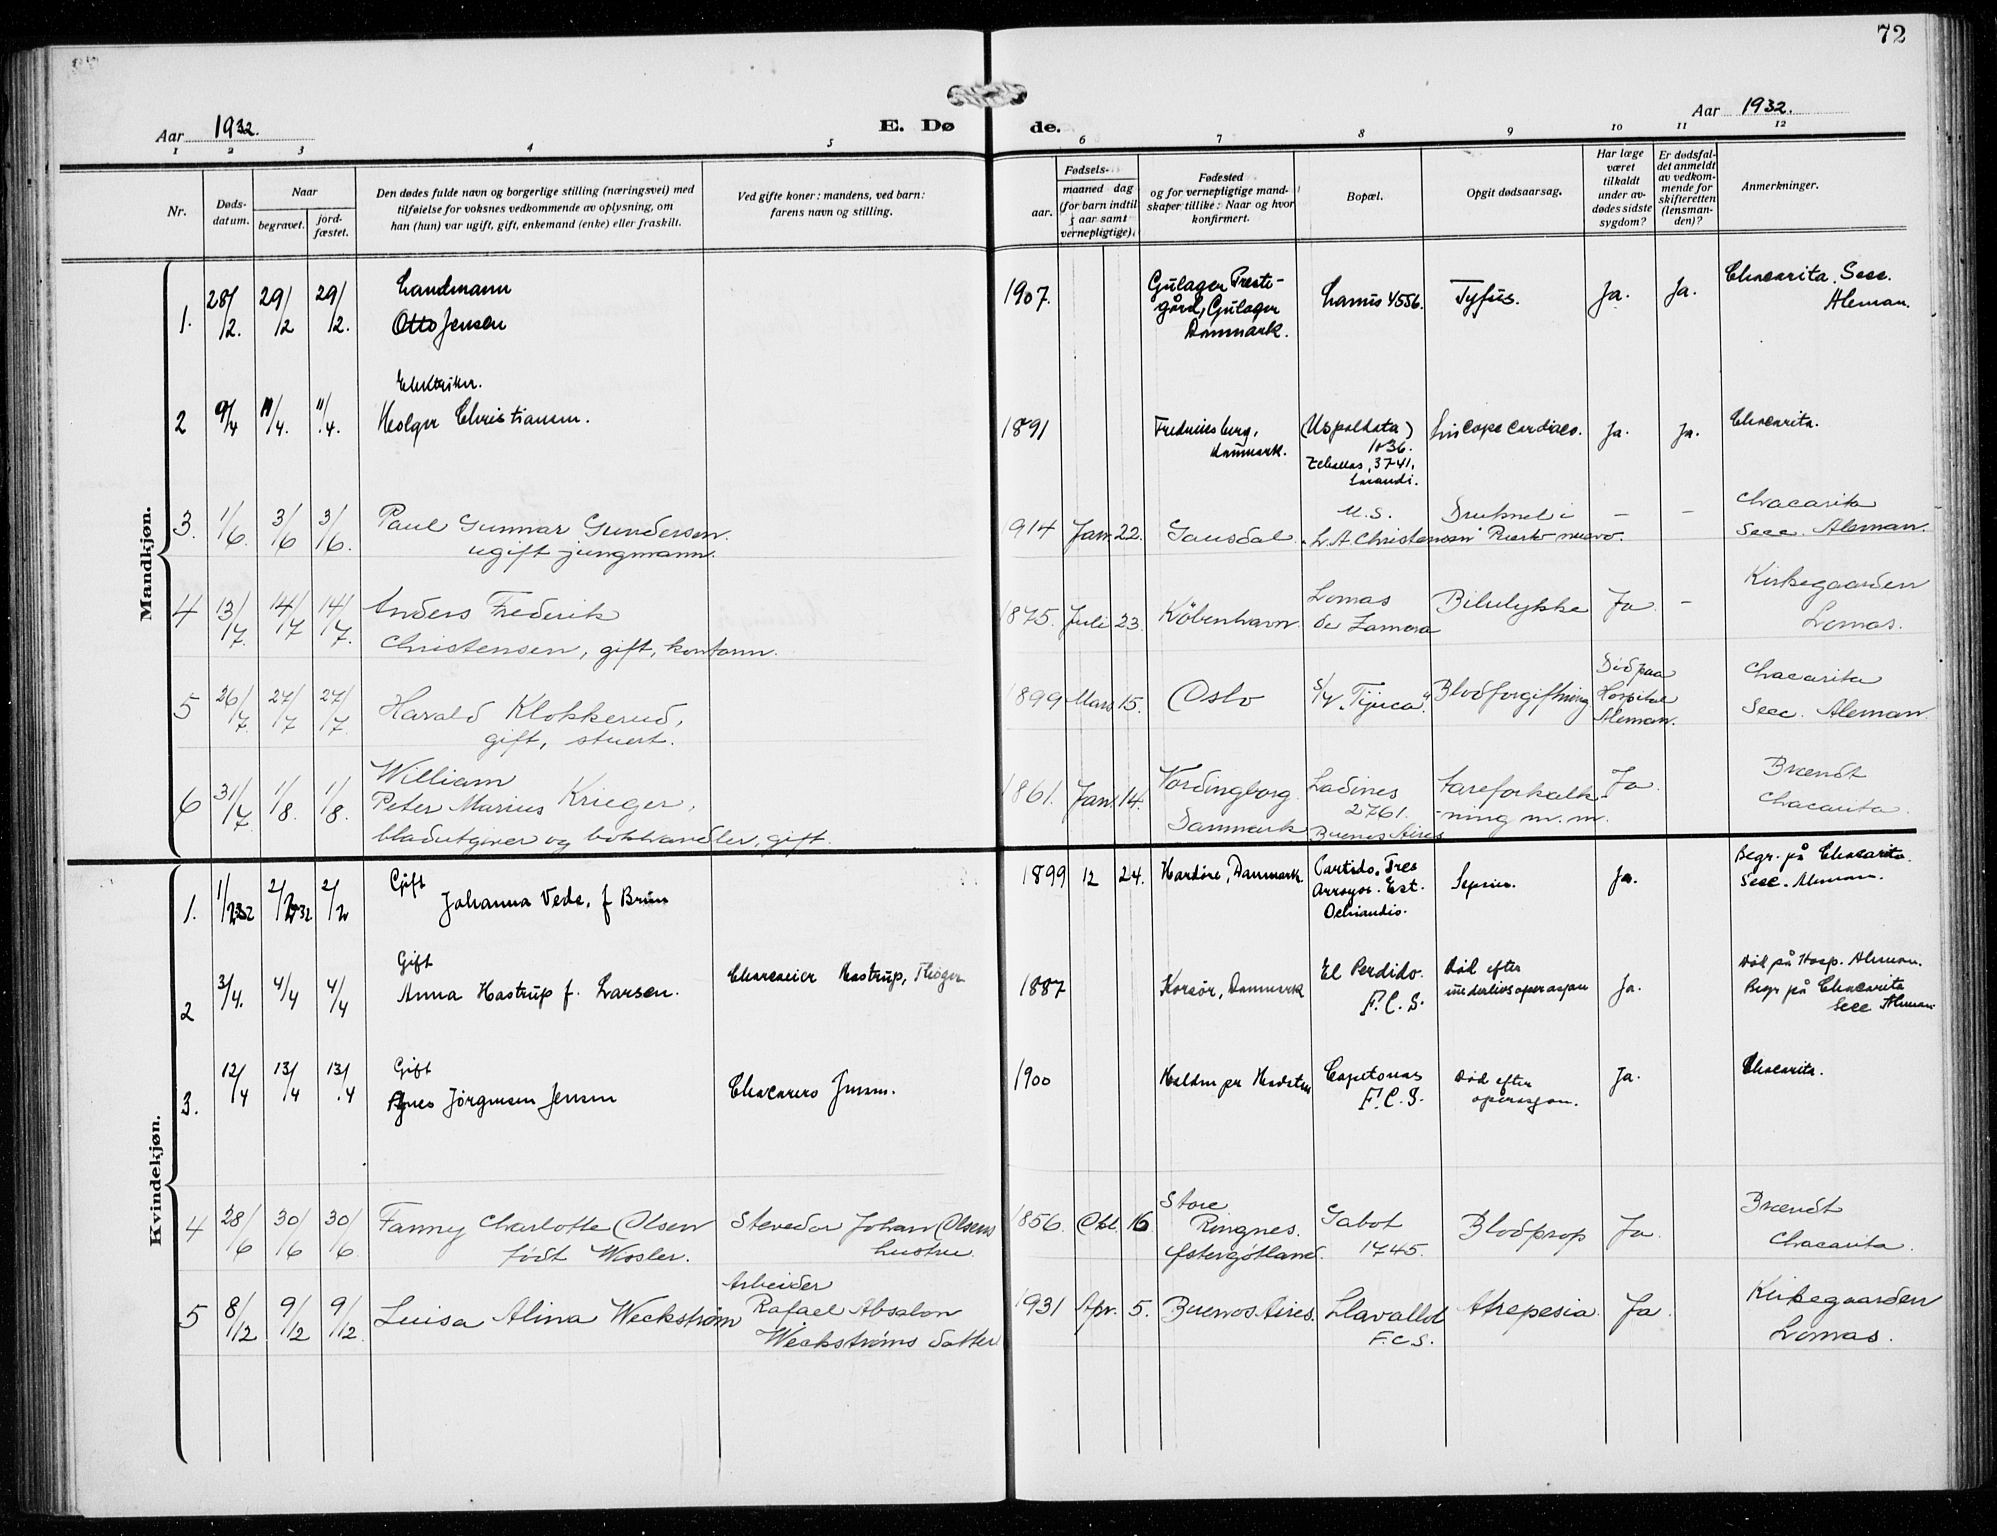 72
Aar 1932.
E. Dø de.
Aar 1932.
1 2 3 4 5 6 7 8 9 10 11 12
Nr.
Døds-
datum.
Naar
begravet.
jord-
fæstet.
Den dødes fulde navn og borgerlige stilling (næringsvei) med
tilføielse for voksnes vedkommende av oplysning, om
han (hun) var ugift, gift, enkemand (enke) eller fraskilt.
Ved gifte koner: mandens, ved barn:
farens navn og stilling.
Fødsels-
aar.
maaned dag
(for barn indtil
5 aar samt
vernepligtige).
Fødested
og for vernepligtige mand-
skaper tillike: Naar og hvor
konfirmert.
Bopæl.
Opgit dødsaarsag.
Har læge
været
tilkaldt
under av-
dødes sidste
sygdom?
Er dødsfal-
det anmeldt
av vedkom-
mende for
skifteretten
(lensman-
den)?
Anmerkninger.
Mandkjøn.
1. 28/2. 29/2 29/2.
Landmann
Otto Jensen
1907.
Gülager Preste-
gård, Gülager
Danmark.
Lanus 4556.
Tyfus.
Ja.
Ja.
Chacarita. Secc.
Aleman.
2 9/4 11/4. 11/.4.
Elektriker.
Holger Christiansen.
1891
Fredricksberg,
Danmark.
(Uspaldata)
1036.
37-41,
Sarandi.
Sincope cardiaco.
Ja.
Ja.
Chacarita.
3. 1/6. 3/6 3/6.
Paul Gunnar Gundersen.
ugift jungmann.
914 Jan. 22.
Gausdal
M.S.
"L.A. Christensen"
Druknet i
Puerto nuevo.
–
–
Chacarita
Secc. Aleman.
4 13/7. 14/7 14/7.
Anders Frederik
Christensen, gift, kontorm.
1875. Juli 23.
København.
Lomas
de Zamora
Bilulykke
Ja.
–
Kirkegaarden
Lomas.
5 26/7. 27/7 27/7.
Harald Klokkerud,
gift, stuert.
1899 Mars 15.
Oslo
S/V "Tijuca".
Blodforgiftning
Død paa
Hospital
Aleman.
Chacarita
Secc. Aleman.
6 31/7. 1/8. 1/8.
William
Peter Marius Krieger,
bladutgiver og bokhandler, gift.
1861. Jan. 14.
Vordingborg
Danmark
Ladines
2761.
Buenos Aires
Aareforkalk-
-ning m.m.
Ja.
Brændt
Chacarita.
Kvindekjøn.
1. 1/2 32 2/2 32 2/2
Gift
Johanna Vede, f Brün
1899 12 24.
Hardöre, Danmark.
Partido. Tres
Arroyos. Est.
Ochandio.
Sepsier.
Ja.
Begr. på Chacarita.
Secc. Aleman.
2 3/4. 4/4 4/4
Gift
Anna Hastrup f. Larsen.
Chacracier Hastrup, Thöger
1887
Korsör, Danmark
El Perdido.
F.C.S.
Död efter
underlivsoperasjon
Ja.
Död på Hosp. Aleman.
Begr på Chacarita
Secc Aleman.
3. 12/4 13/4 13/.4
Gift
Agnes Jörgensen Jensen
Chacarero Jensen.
1900
Haldm pr Hadsten
Copetonas
F.C.S.
Död efter
operasjon.
Ja.
Chacarita.
4 28/6 30/6 30/6.
Fanny Charlotte Olsen
født Wosler.
Stevedor Johan Olsens
hustru.
1856. Okt. 16
Store
Ringnes.
Østergötland.
Gabot
1745.
Blodprop
Ja.
Brændt
Chacarita.
5 8/12 9/12 9/12.
Luisa Alina Weckstrøm
Arbeider
Rafael Absalon
Weckstrøms datter
1931 Apr. 5.
Buenos Aires.
Llavallol
F.C.S.
Atrepesia.
Ja.
Kirkegaarden
Lomas.